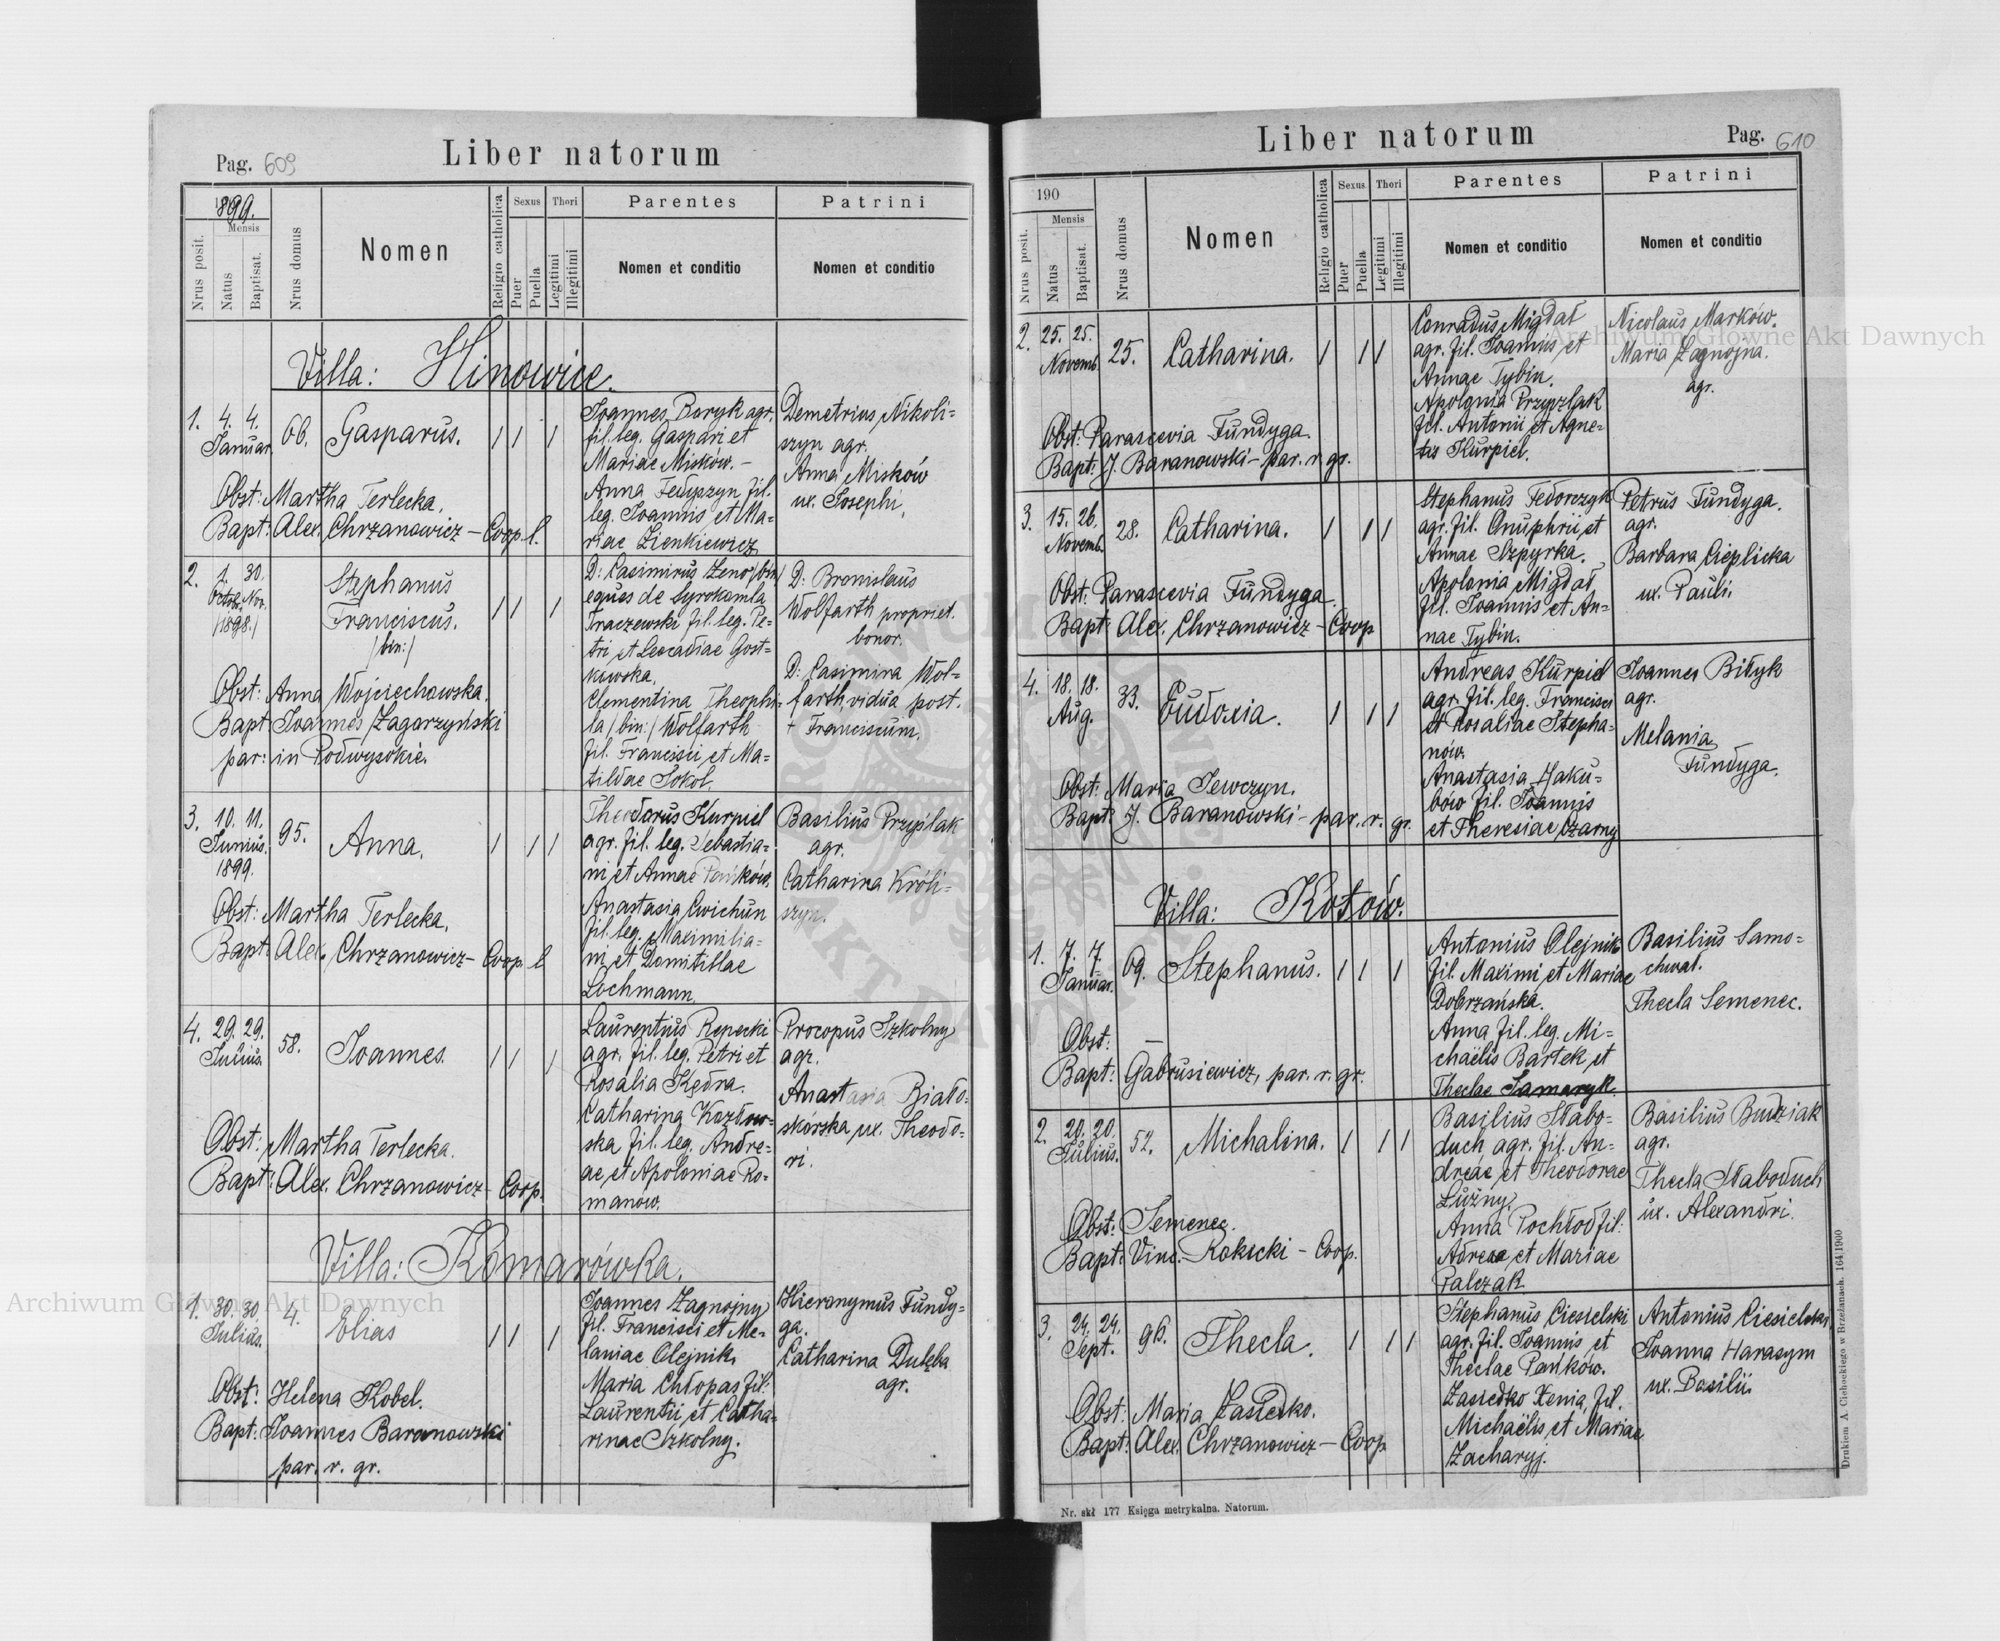 Pag. 609
Liber natorum
1899.
Mensis
Nrus posit.
Natus
Baptisat.
Nrus domus
Nomen
Religio catholica
Sexus
Puer
Puella
Thori
Legitimi
Illegitimi
Parentes
Nomen et conditio
Patrini
Nomen et conditio
Villa: Hinowice.
1. 4. 4. Januar. 66. Gasparus.
Joannes Boryk agr.
fil. leg. Gaspari et
Mariae Misków. –
Anna Fedyszyn fil.
leg. Joannis et Ma=
riae Zienkiewicz
Demetrius Nikoli=
szyn agr.
Anna Misków
ux. Josephi.
Obst: Martha Terlecka.
Bapt: Alex. Chrzanowicz – Coop. l.
2. 1. 30. Octob. Nov. /1898./
Stephanus
Franciscus.
/bin:/
D: Casimirus Zeno /bin/
eques de Syrokomla
Traczewski fil. leg. Pe=
tri et Leocadiae Gost=
kowska.
Clementina Theophi=
la /bin:/ Wolfarth
fil. Francisci et Ma=
tildae Sokol.
D: Bronislaus
Wolfarth propriet.
bonor.
D: Casimira Wol=
farth, vidua post.
+ Franciscum.
Obst: Anna Wojciechowska.
Bapt: Joannes Zagarzyński
par: in Podwysokie.
3. 10. 11. Junius. 1899. 95. Anna.
Theodorus Kurpiel
agr. fil. leg. Sebastia=
ni et Annae Pańków.
Anastasia Cwichun
fil. leg. Maximilia=
ni et Domitillae
Lochmann.
Basilius Przyślak
agr.
Catharina Króli=
szyn.
Obst: Martha Terlecka.
Bapt: Alex. Chrzanowicz – Coop. l
4. 29. 29. Julius. 58. Joannes.
Laurentius Repecki
agr. fil. leg. Petri et
Rosalia Kędra.
Catharina Kozłow=
ska fil. leg. Andre=
ae et Apoloniae Ro=
manow.
Procopus Szkolny
agr.
Anastasia Biało=
skórska ux. Theodo=
ri.
Obst: Martha Terlecka.
Bapt: Alex. Chrzanowicz – Coop.
Villa: Komarówka.
1. 30. 30. Julius. 4. Elias
Joannes Zagnojny
fil. Francisci et Me=
laniae Olejnik.
Maria Chłopas fil:
Laurentii et Catha=
rinae Szkolny.
Hieronymus Fundy=
ga.
Catharina Dulęba
agr.
Obst: Helena Kobel.
Bapt: Joannes Baranowski
par. r. gr.
Liber natorum
Pag. 610
190
Mensis
Nrus posit.
Natus
Baptisat.
Nrus domus
Nomen
Religio catholica
Sexus
Puer
Puella
Thori
Legitimi
Illegitimi
Parentes
Nomen et conditio
Patrini
Nomen et conditio
2. 25. 25. Novemb. 25. Catharina.
Conradus Migdał
agr. fil. Joannis et
Annae Tybin.
Apolonia Przyszlak
fil. Antonii et Agne=
tis Kurpiel.
Nicolaus Marków.
Maria Zagnojna.
agr.
Obst: Parascevia Fundyga.
Bapt: J. Baranowski – par. r. gr.
3. 15. 26. Novemb. 28. Catharina.
Stephanus Fedorczyk
agr. fil. Onuphrii et
Annae Szpyrka.
Apolonia Migdał
fil. Joannis et An=
nae Tybin.
Petrus Fundyga.
agr.
Barbara Cieplicka
ux. Pauli.
Obst: Parascevia Fundyga
Bapt: Alex. Chrzanowicz – Coop
4. 18. 18. Aug. 33. Eudoxia.
Andreas Kurpiel
agr. fil. leg. Francisci
et Rosaliae Stepha=
nów.
Anastasia Jaku=
bów fil. Joannis
et Theresiae Czarny
Joannes Bidyk
agr.
Melania
Fundyga.
Obst: Maria Sewczyn.
Bapt: J. Baranowski – par. r. gr.
Villa: Kotów.
1. 7. 7. Januar. 69. Stephanus.
Antonius Olejnik
fil. Maximi et Mariae
Dobrzańska.
Anna fil. leg. Mi=
chaëlis Bartek et
Theclae Samaryk
Basilius Samo=
chwał.
Thecla Semenec.
Obst: —
Bapt: Gabrusiewicz, par. r. gr.
2. 20. 20. Julius. 52. Michalina.
Basilius Słabo=
duch agr. fil. An=
dreae et Theodorae
Luzny.
Anna Pochłod fil:
Adreae et Mariae
Palczak
Basilius Budziak
agr.
Thecla Słaboduch
ux. Alexandri.
Obst: Semenec.
Bapt: Vinc. Rokicki – Coop.
3. 24. 24. Sept. 96. Thecla.
Stephanus Ciesielski
agr. fil. Joannis et
Theclae Pańków.
Zasiedko Xenia, fil.
Michaëlis et Mariae
Zacharyj.
Antonius Ciesielski
Joanna Harasym
ux. Basilii
Obst: Maria Zasiedko.
Bapt: Alex. Chrzanowicz – Coop
Nr. skł 177 Księga metrykalna. Natorum.
Drukiem A. Cichockiego w Brzeżanach. 164/1900
Archiwum Główne Akt Dawnych
Archiwum Główne Akt Dawnych